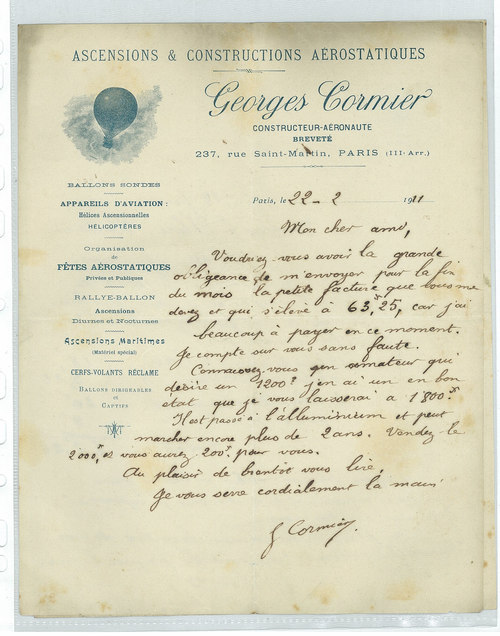 ASCENSIONS & CONSTRUCTIONS AÉROSTATIQUES
Georges Cormier
CONSTRUCTEUR-AÉRONAUTE
BREVETÉ
237, rue Saint-Martin, PARIS (III. Arr.)
BALLONS SONDES
APPAREILS D'AVIATION :
Hélices Ascensionnelles
HÉLICOPTÈRES
Organisation
de
FÊTES AÉROSTATIQUES
Privées et Publiques
RALLYE-BALLON
Ascensions
Diurnes et Nocturnes
Ascensions Maritimes
(Matériel spécial)
CERFS-VOLANTS RÉCLAME
BALLONS DIRIGEABLES
et
CAPTIFS
Paris, le 22 - 2 1911
Mon cher ami,
Voudriez-vous avoir la grande
obligeance de m'envoyer pour la fin
du mois la petite facture que vous me
devez et qui s'élève à 63f,25, car j'ai
beaucoup à payer en ce moment.
Je compte sur vous sans faute.
Connaissez vous un amateur qui
désire un 1200? j'en ai un en bon
état que je vous laisserai à 1800f
Il est passé à l'alluminium et peut
marcher encore plus de 2 ans. Vendez le
2000f, et vous aurez 200f pour vous.
Au plaisir de bientôt vous lire,
Je vous serre cordialement la main
G Cormier